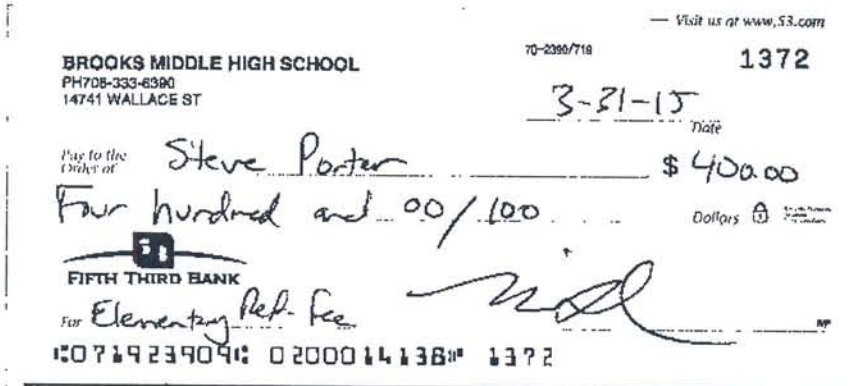 — Visit us at www.53.com
70-2390/719
1372
BROOKS MIDDLE HIGH SCHOOL
PH708-333-6390
14741 WALLACE ST
3-31-15
Date
Pay to the
Order of
Steve Porter
$ 400.00
Four hundred and 00/100
Dollars
53
FIFTH THIRD BANK
For Elementary Ref. Fee
MP
⑆071923909⑆ 0200014138⑈ 1372